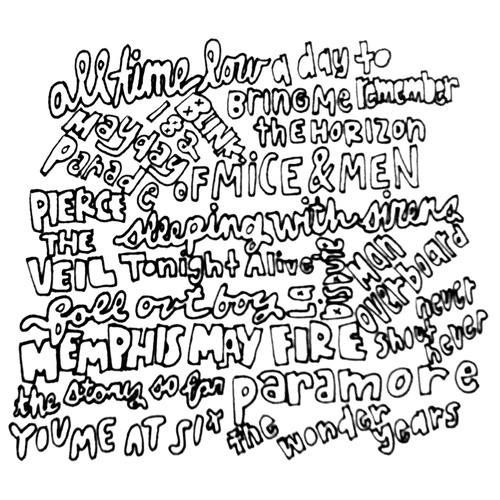 all time low
a day to
remember
BLINK
182
BRING ME
tHE HORIZON
Mayday
Parade
OF MICE & MEN
PIERCE
THE
VEIL
sleeping with sirens
Tonight Alive
La
DISPUTE
MAN
OVERBOARD
fall out boy
never
shout
never
MEMPHIS MAY FIRE
the story so far
paramore
YOU ME AT SIX
the wonder
years